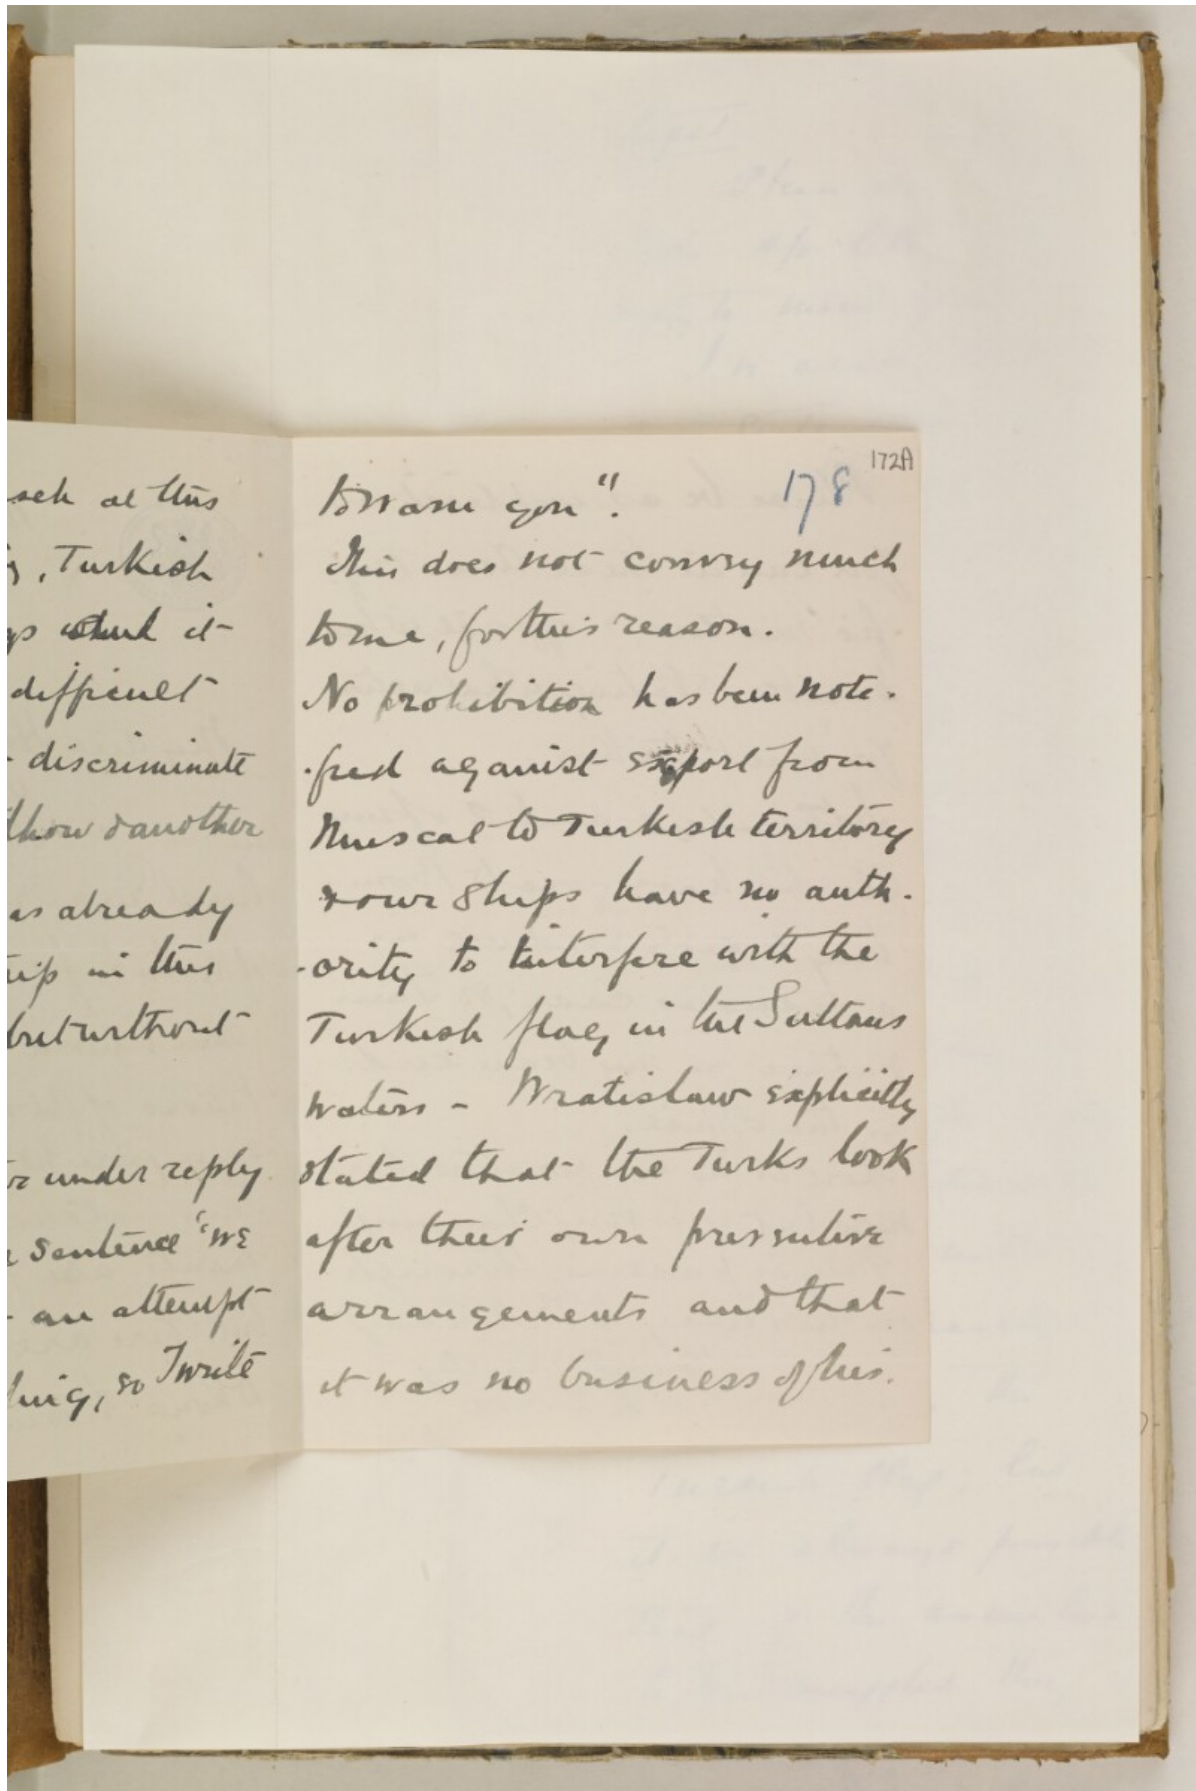 sch at this
, Turkish
it
difficult
discriminate
dhow & another
as already
in this
but without
under reply
sentence "we
an attempt
so I write
172A
178
to warn you".
This does not convey much
to me, for this reason.
No prohibition has been noti-
-fied against export from
Muscat to Turkish territory
& our ships have no auth-
-ority to interfere with the
Turkish flag in the Sultans
waters - Wratislaw explicitly
stated that the Turks look
after their own preventive
arrangements and that
it was no business of his.